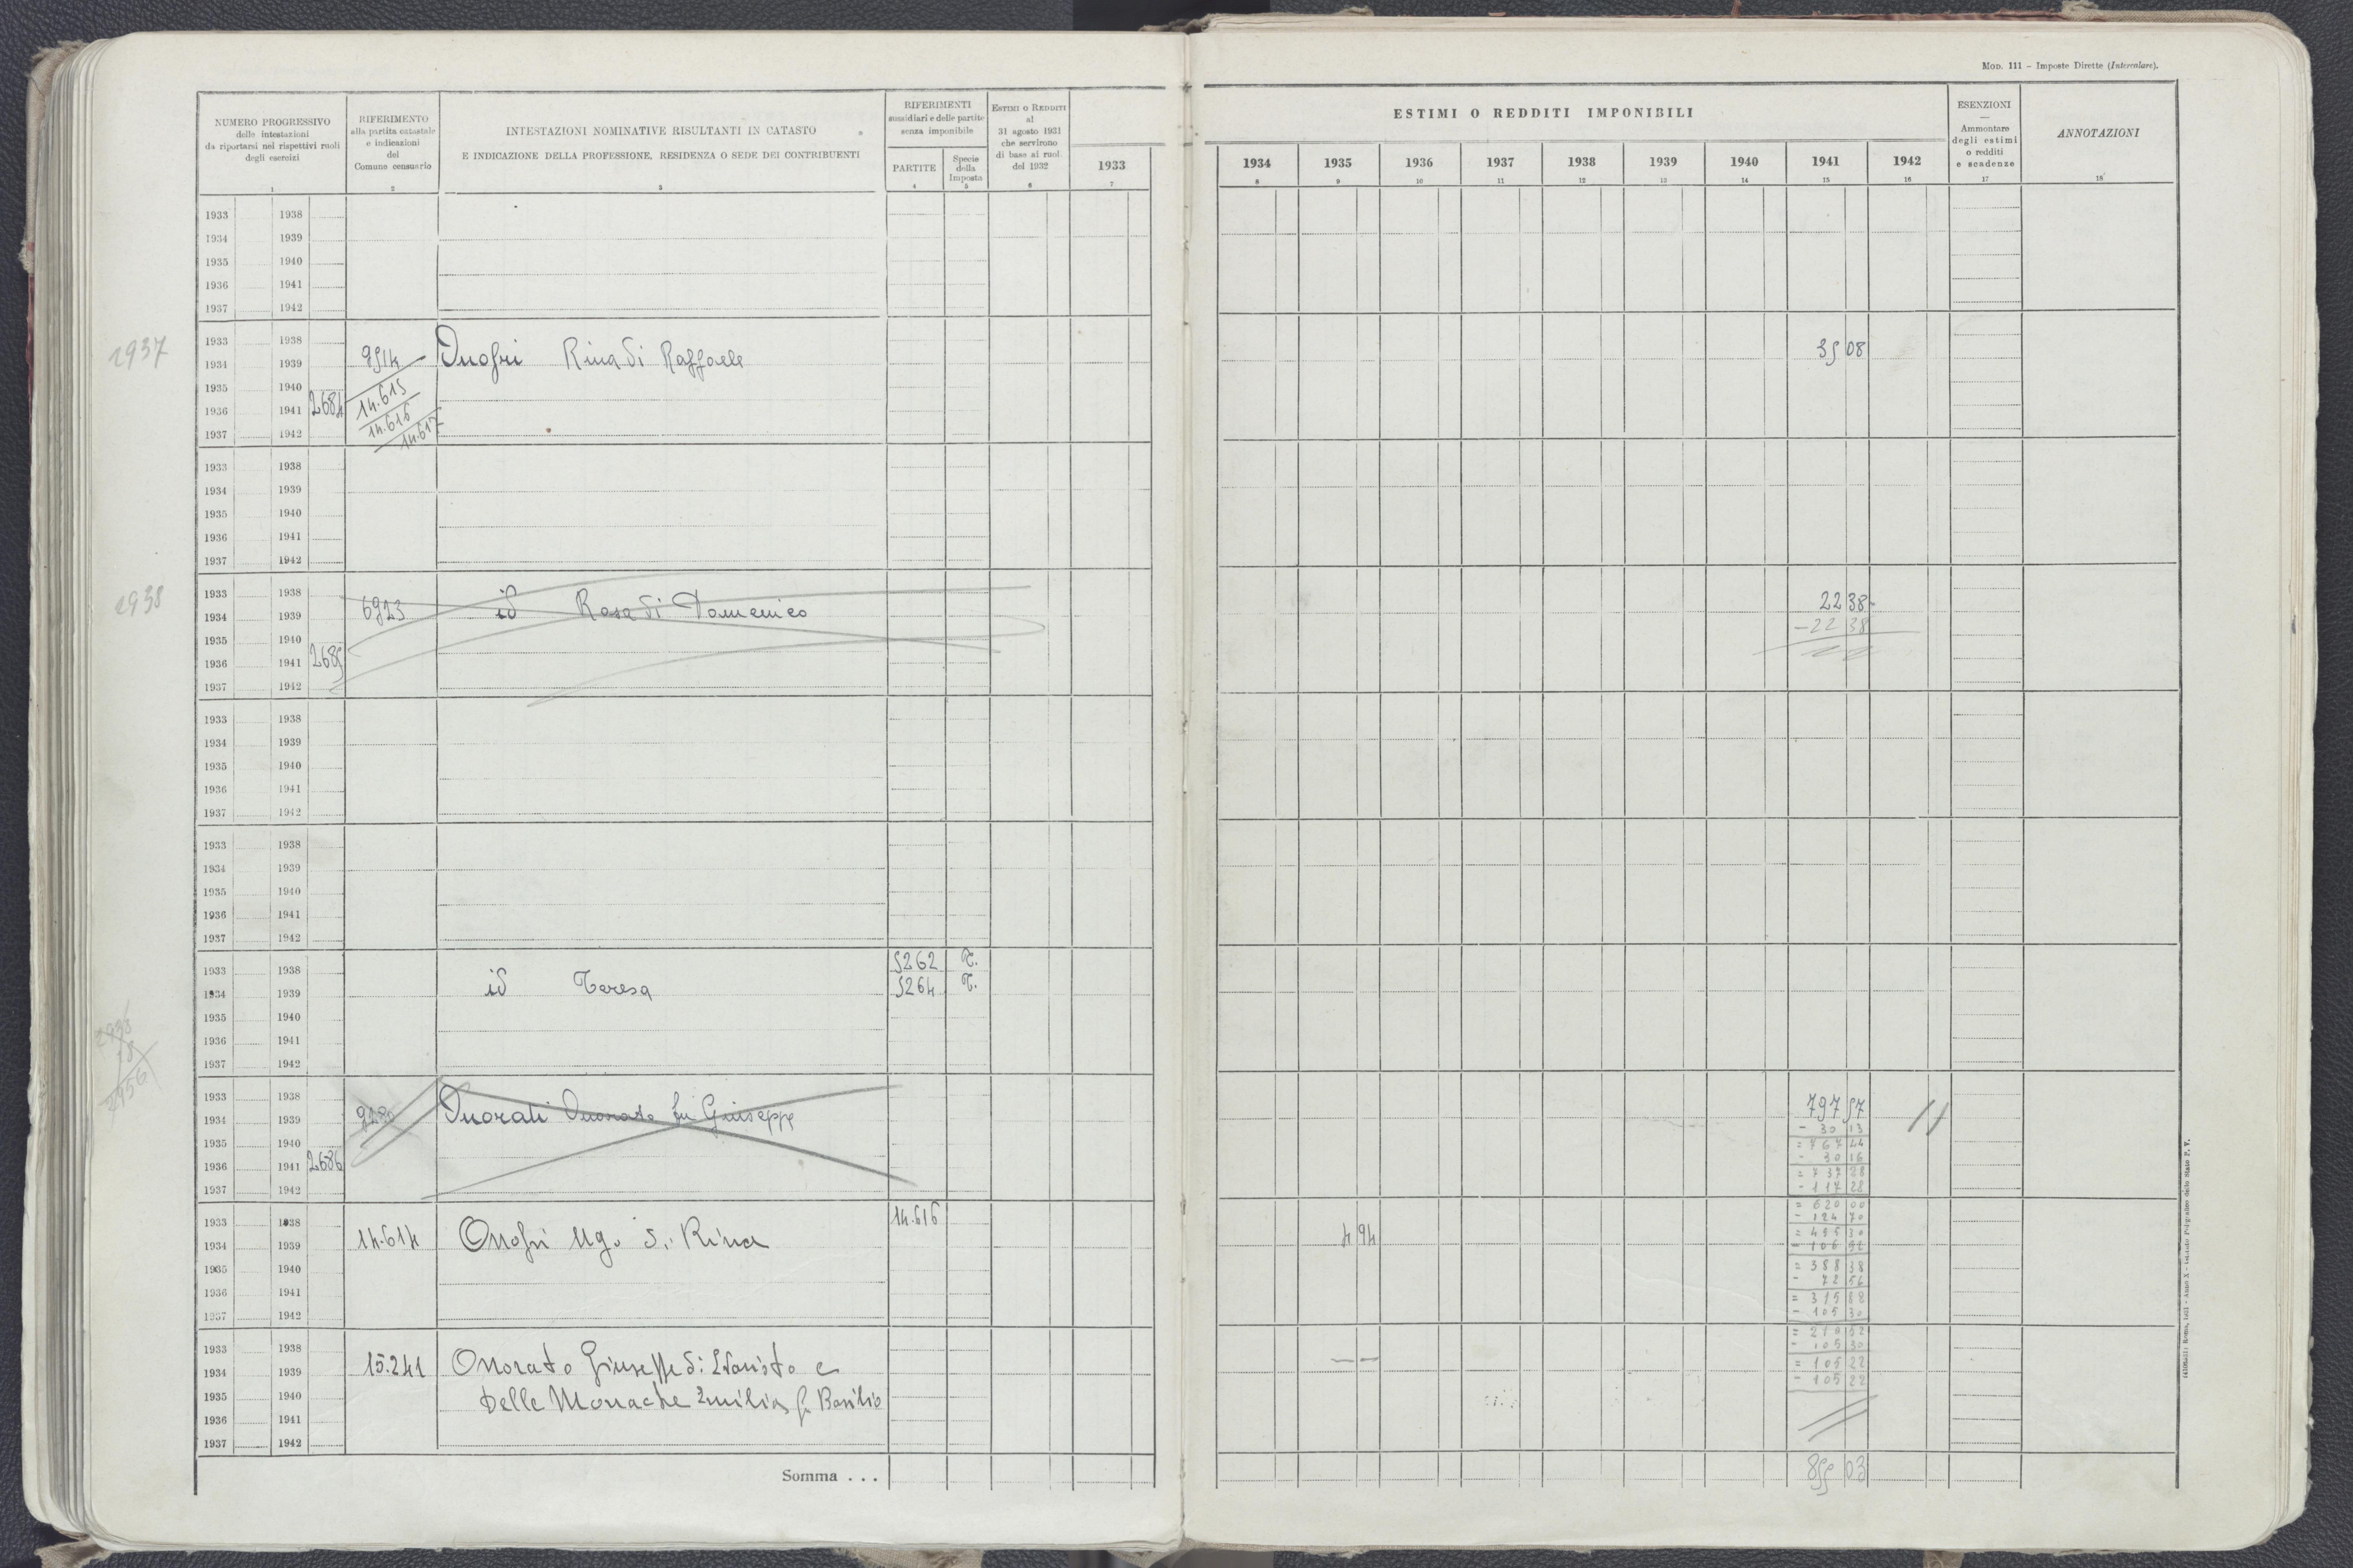 MOD. 111 – Imposte Dirette (Intercalare).
NUMERO PROGRESSIVO
delle intestazioni
da riportarsi nei rispettivi ruoli
degli esercizi
1
RIFERIMENTO
alla partita catastale
e indicazioni
del
Comune censuario
2
INTESTAZIONI NOMINATIVE RISULTANTI IN CATASTO
E INDICAZIONE DELLA PROFESSIONE, RESIDENZA O SEDE DEI CONTRIBUENTI
3
RIFERIMENTI
sussidiari e delle partite
senza imponibile
PARTITE
4
Specie
della
Imposta
5
ESTIMI O REDDITI
al
31 agosto 1931
che servirono
di base ai ruoli
del 1932
6
1933
7
ESTIMI O REDDITI IMPONIBILI
1934 1935 1936 1937 1938 1939 1940 1941 1942
8 9 10 11 12 13 14 15 16
ESENZIONI
—
Ammontare
degli estimi
o redditi
e scadenze
17
ANNOTAZIONI
18
1933 1938
1934 1939
1935 1940
1936 1941
1937 1942
2937
1933 1938
1934 1939 9514 Onofri Rina di Raffaele 35 08
1935 1940 14.615
1936 1941 2684 14.616
1937 1942 14.617
1933 1938
1934 1939
1935 1940
1936 1941
1937 1942
2938
1933 1938 22 38
1934 1939 6923 id Rosa di Domenico
1935 1940 – 22 38
1936 1941 2685
1937 1942
1933 1938
1934 1939
1935 1940
1936 1941
1937 1942
1933 1938
1934 1939
1935 1940
1936 1941
1937 1942
5262 T.
1933 1938
1934 1939 id Teresa 5264 T.
1935 1940
1936 1941
1937 1942
2938
18
2956
1933 1938 797 57
1934 1939 Onorati Onorato fu Giuseppe
- 30 13
1935 1940 = 767 44
- 30 16
1936 1941 2686 = 737 28
1937 1942 - 117 28
14.616 = 620 00
1933 1938 - 124 70
1934 1939 14.614 Onofri Ugo di Rina 4 94 = 495 30
- 106 92
1935 1940 = 388 38
1936 1941 - 72 56
= 315 82
1937 1942 - 105 30
= 210 52
1933 1938 - 105 30
1934 1939 15.241 Onorato Giuseppe di Evaristo e — — = 105 22
- 105 22
1935 1940 Delle Monache Emilia fu Basilio
1936 1941
1937 1942
Somma . . . 855 03